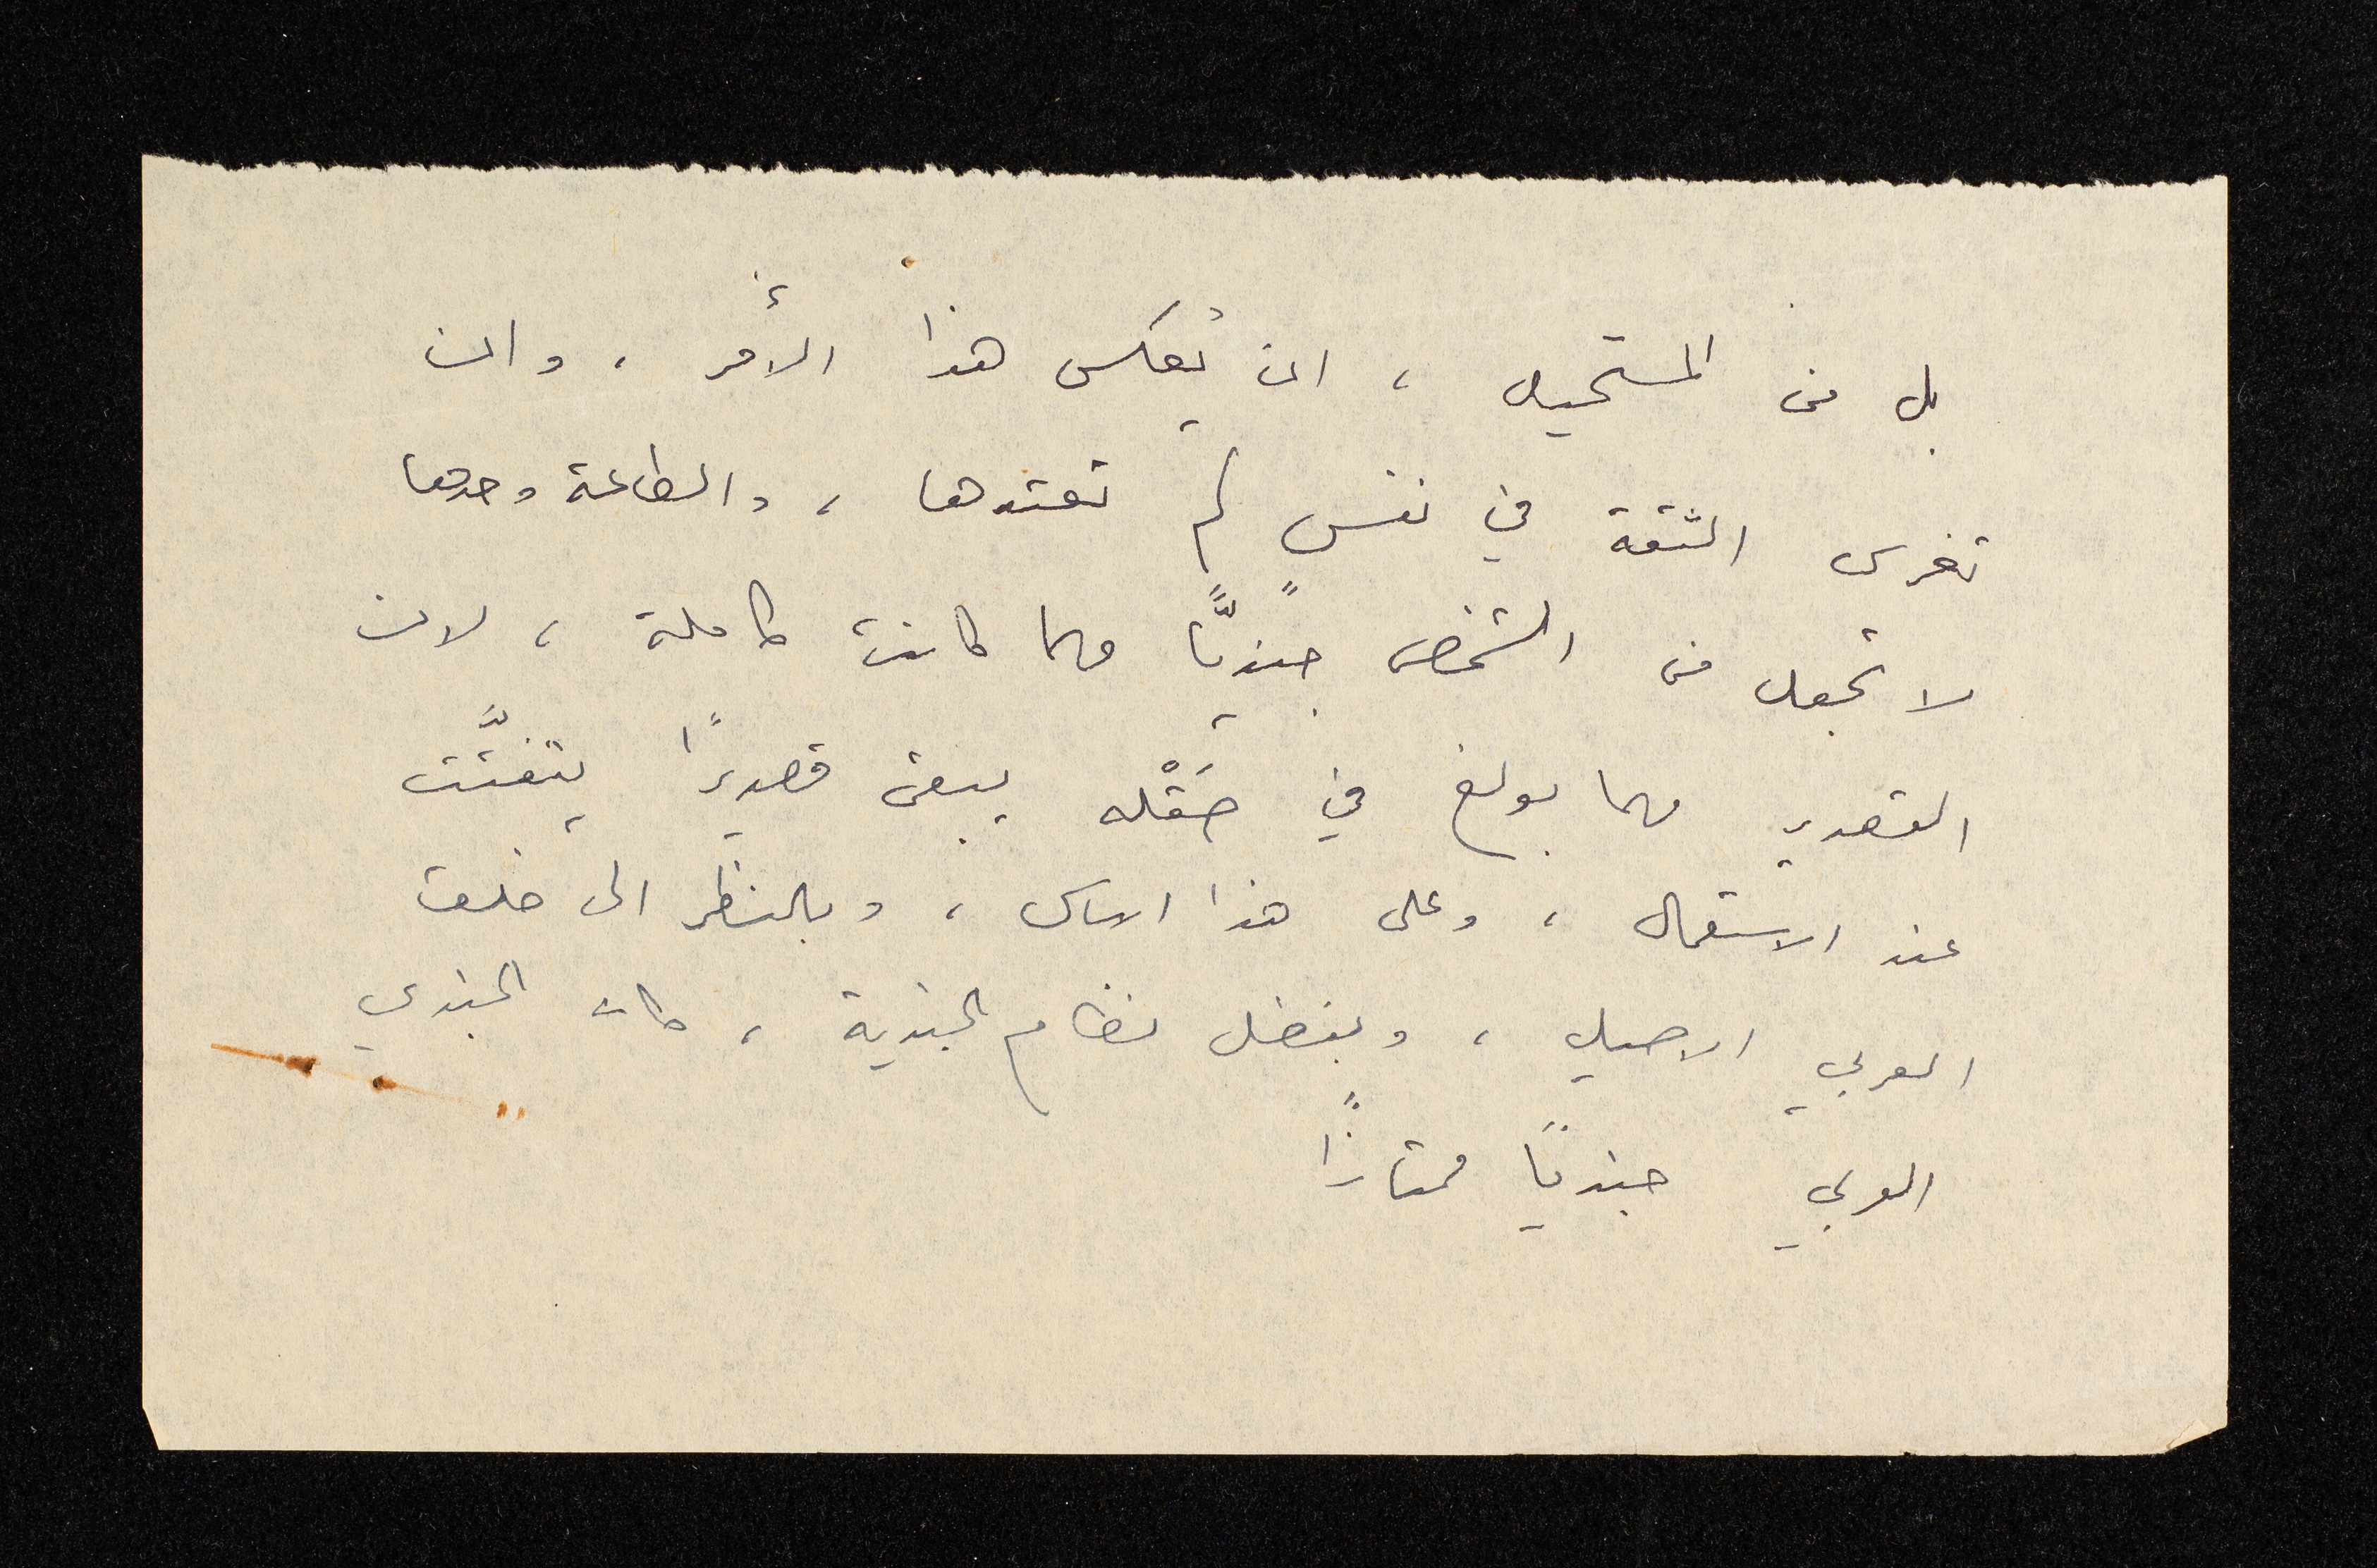 بل من المستحيل ، ان يُعكس هذا الأمر ، وان
تغرس الثقة في نفس لم تعتدها ، والطاعة وحدها
لا تجعل من الشخص جنديًّا مهما كانت كاملة ، لان
القصدير مهما بولغ في صَقْله يبقى قصديرًا يتفتَّت
عند الاستعمال ، وعلى هذا الاساس ، وبالنظر الى خلق
العربي الاصيل ، وبفضل نظام الجندية ، كان الجندي
العربي جنديًا ممتازًا